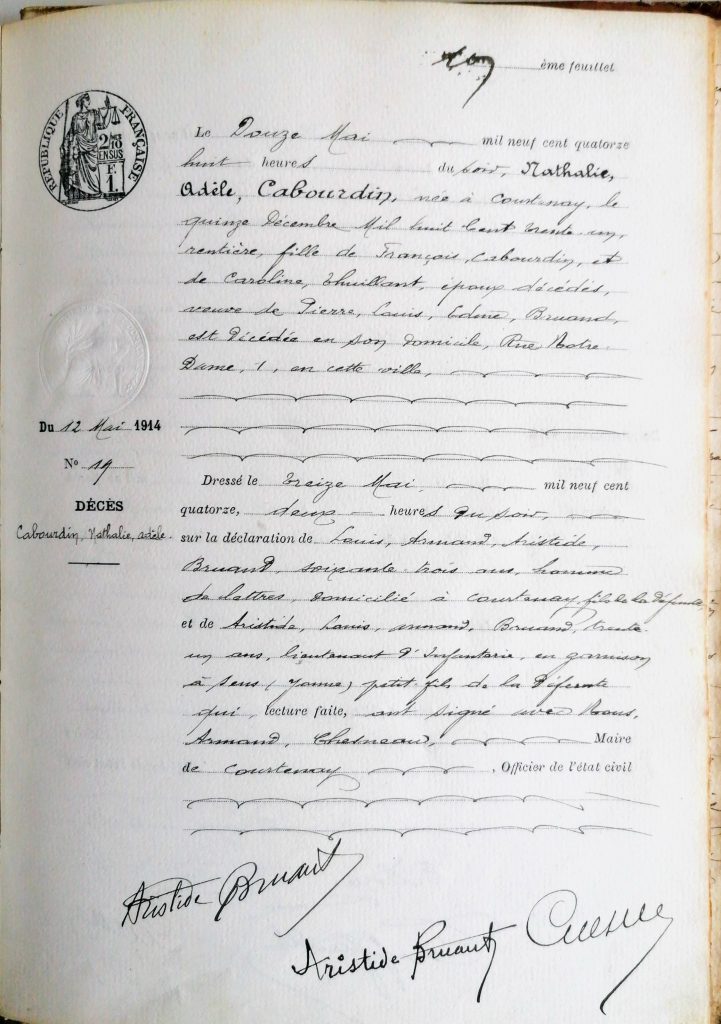 ème feuillet
RÉPUBLIQUE FRANÇAISE
2/10
EN SUS
F.
1.
Le Douze Mai mil neuf cent quatorze
huit heures du soir, Nathalie,
Adèle, Cabourdin, née à Courtenay, le
quinze Décembre Mil huit Cent trente un,
rentière, fille de François, Cabourdin, et
de Caroline, Thuillant, époux décédés,
veuve de Pierre, Louis, Edme, Bruand,
est Décédée en son Domicile, Rue Notre
Dame, 1, en cette ville,
Du 12 Mai 1914
No 19
DÉCÈS
Cabourdin, Nathalie, adèle.
Dressé le treize Mai, mil neuf cent
quatorze, deux heures Du soir,
sur la déclaration de Louis, Armand, Aristide,
Bruand, soixante trois ans, homme
de lettres, Domicilié à Courtenay, fils de la Défunte
et de Aristide, Louis, Armand, Bruand, trente
un ans, lieutenant D'Infanterie, en garnison
à Sens (Yonne) petit fils de la Défunte
qui, lecture faite, ont signé avec Nous,
Armand, Chesneau, Maire
de Courtenay, Officier de l'état civil
Aristide Bruant
Aristide Bruant